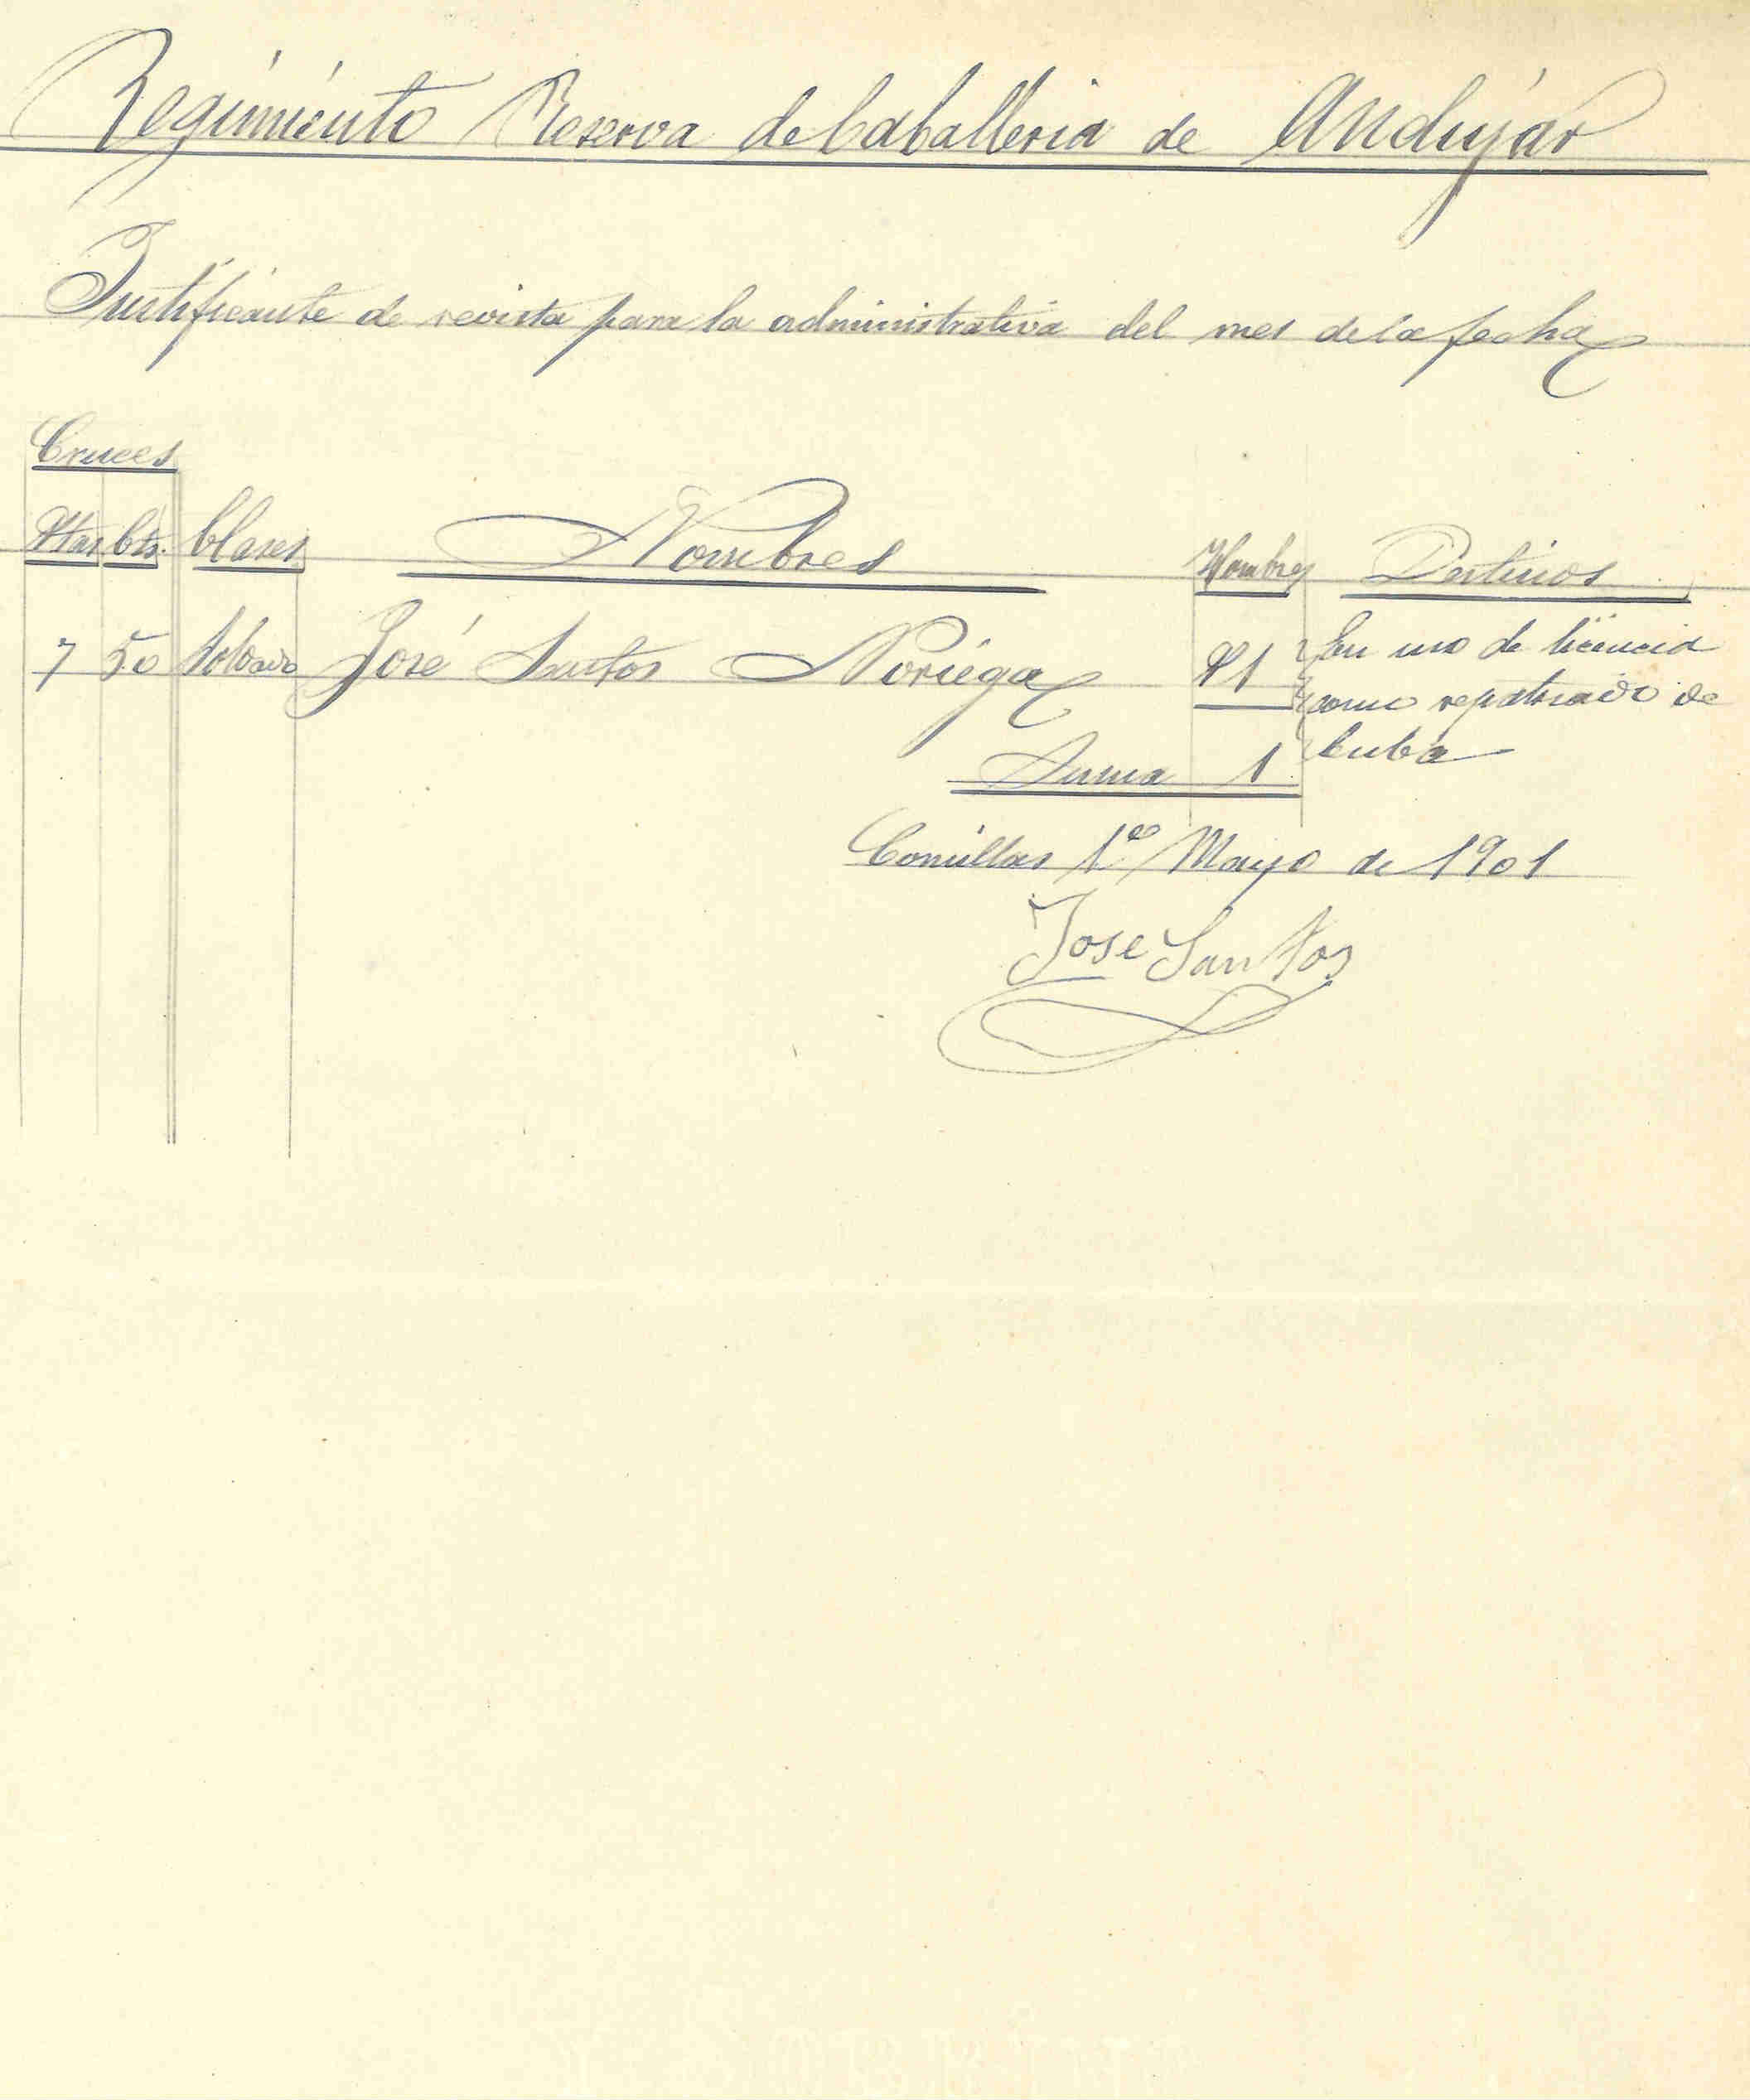 Regimiento Reserva de Caballeria de Andujar
Justificante de revista para la administrativa del mes de la fecha
Cruces
Ptas Cts. Clases Nombres Hombres Destinos
7 50 Soldado José Santos Noriega P 1 En uso de licencia
como repatriado de
Cuba
Suma 1
Comillas 1º Mayo de 1901
Jose Santos